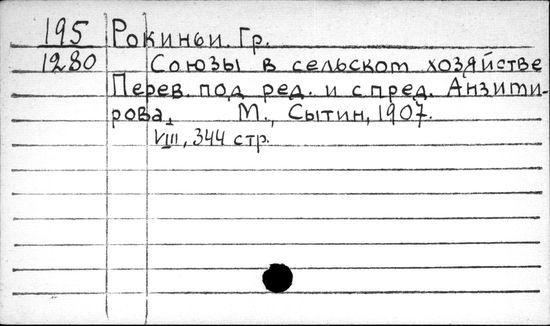 195 Рокиньи. Гр.
1280 Союзы в сельском хозяйстве
Перев. под ред. и с пред. Анзими-
рова. М., Сытин, 1907.
VIII, 344 стр.